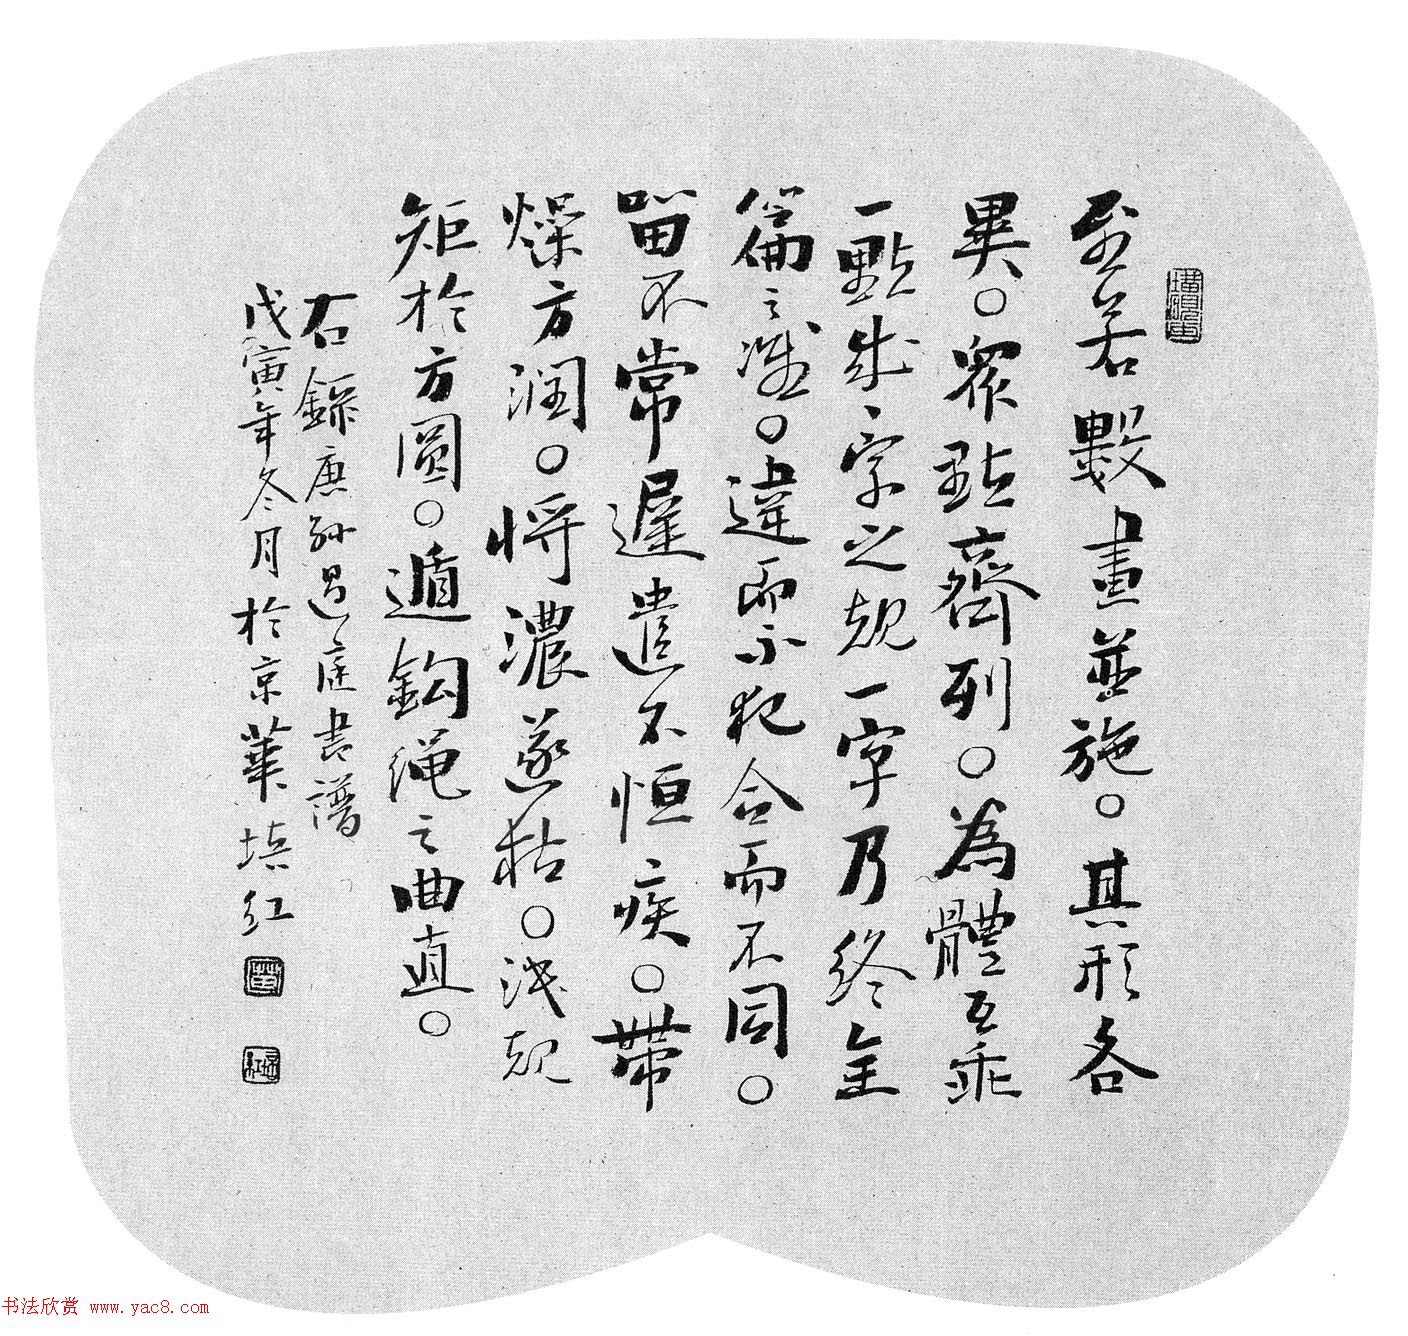 至若數畫並施。其形各
異。眾點齊列。為體互乖
一點成一字之規一字乃終全
篇之準。違而不犯合而不同。
留不常遲遣不恒疾。帶
燥方潤。將濃遂枯。泯規
矩於方圓。遁鈎繩之曲直。
右錄唐孫過庭書譜
戊寅年冬月於京華培紅
书法欣赏 www.yac8.com